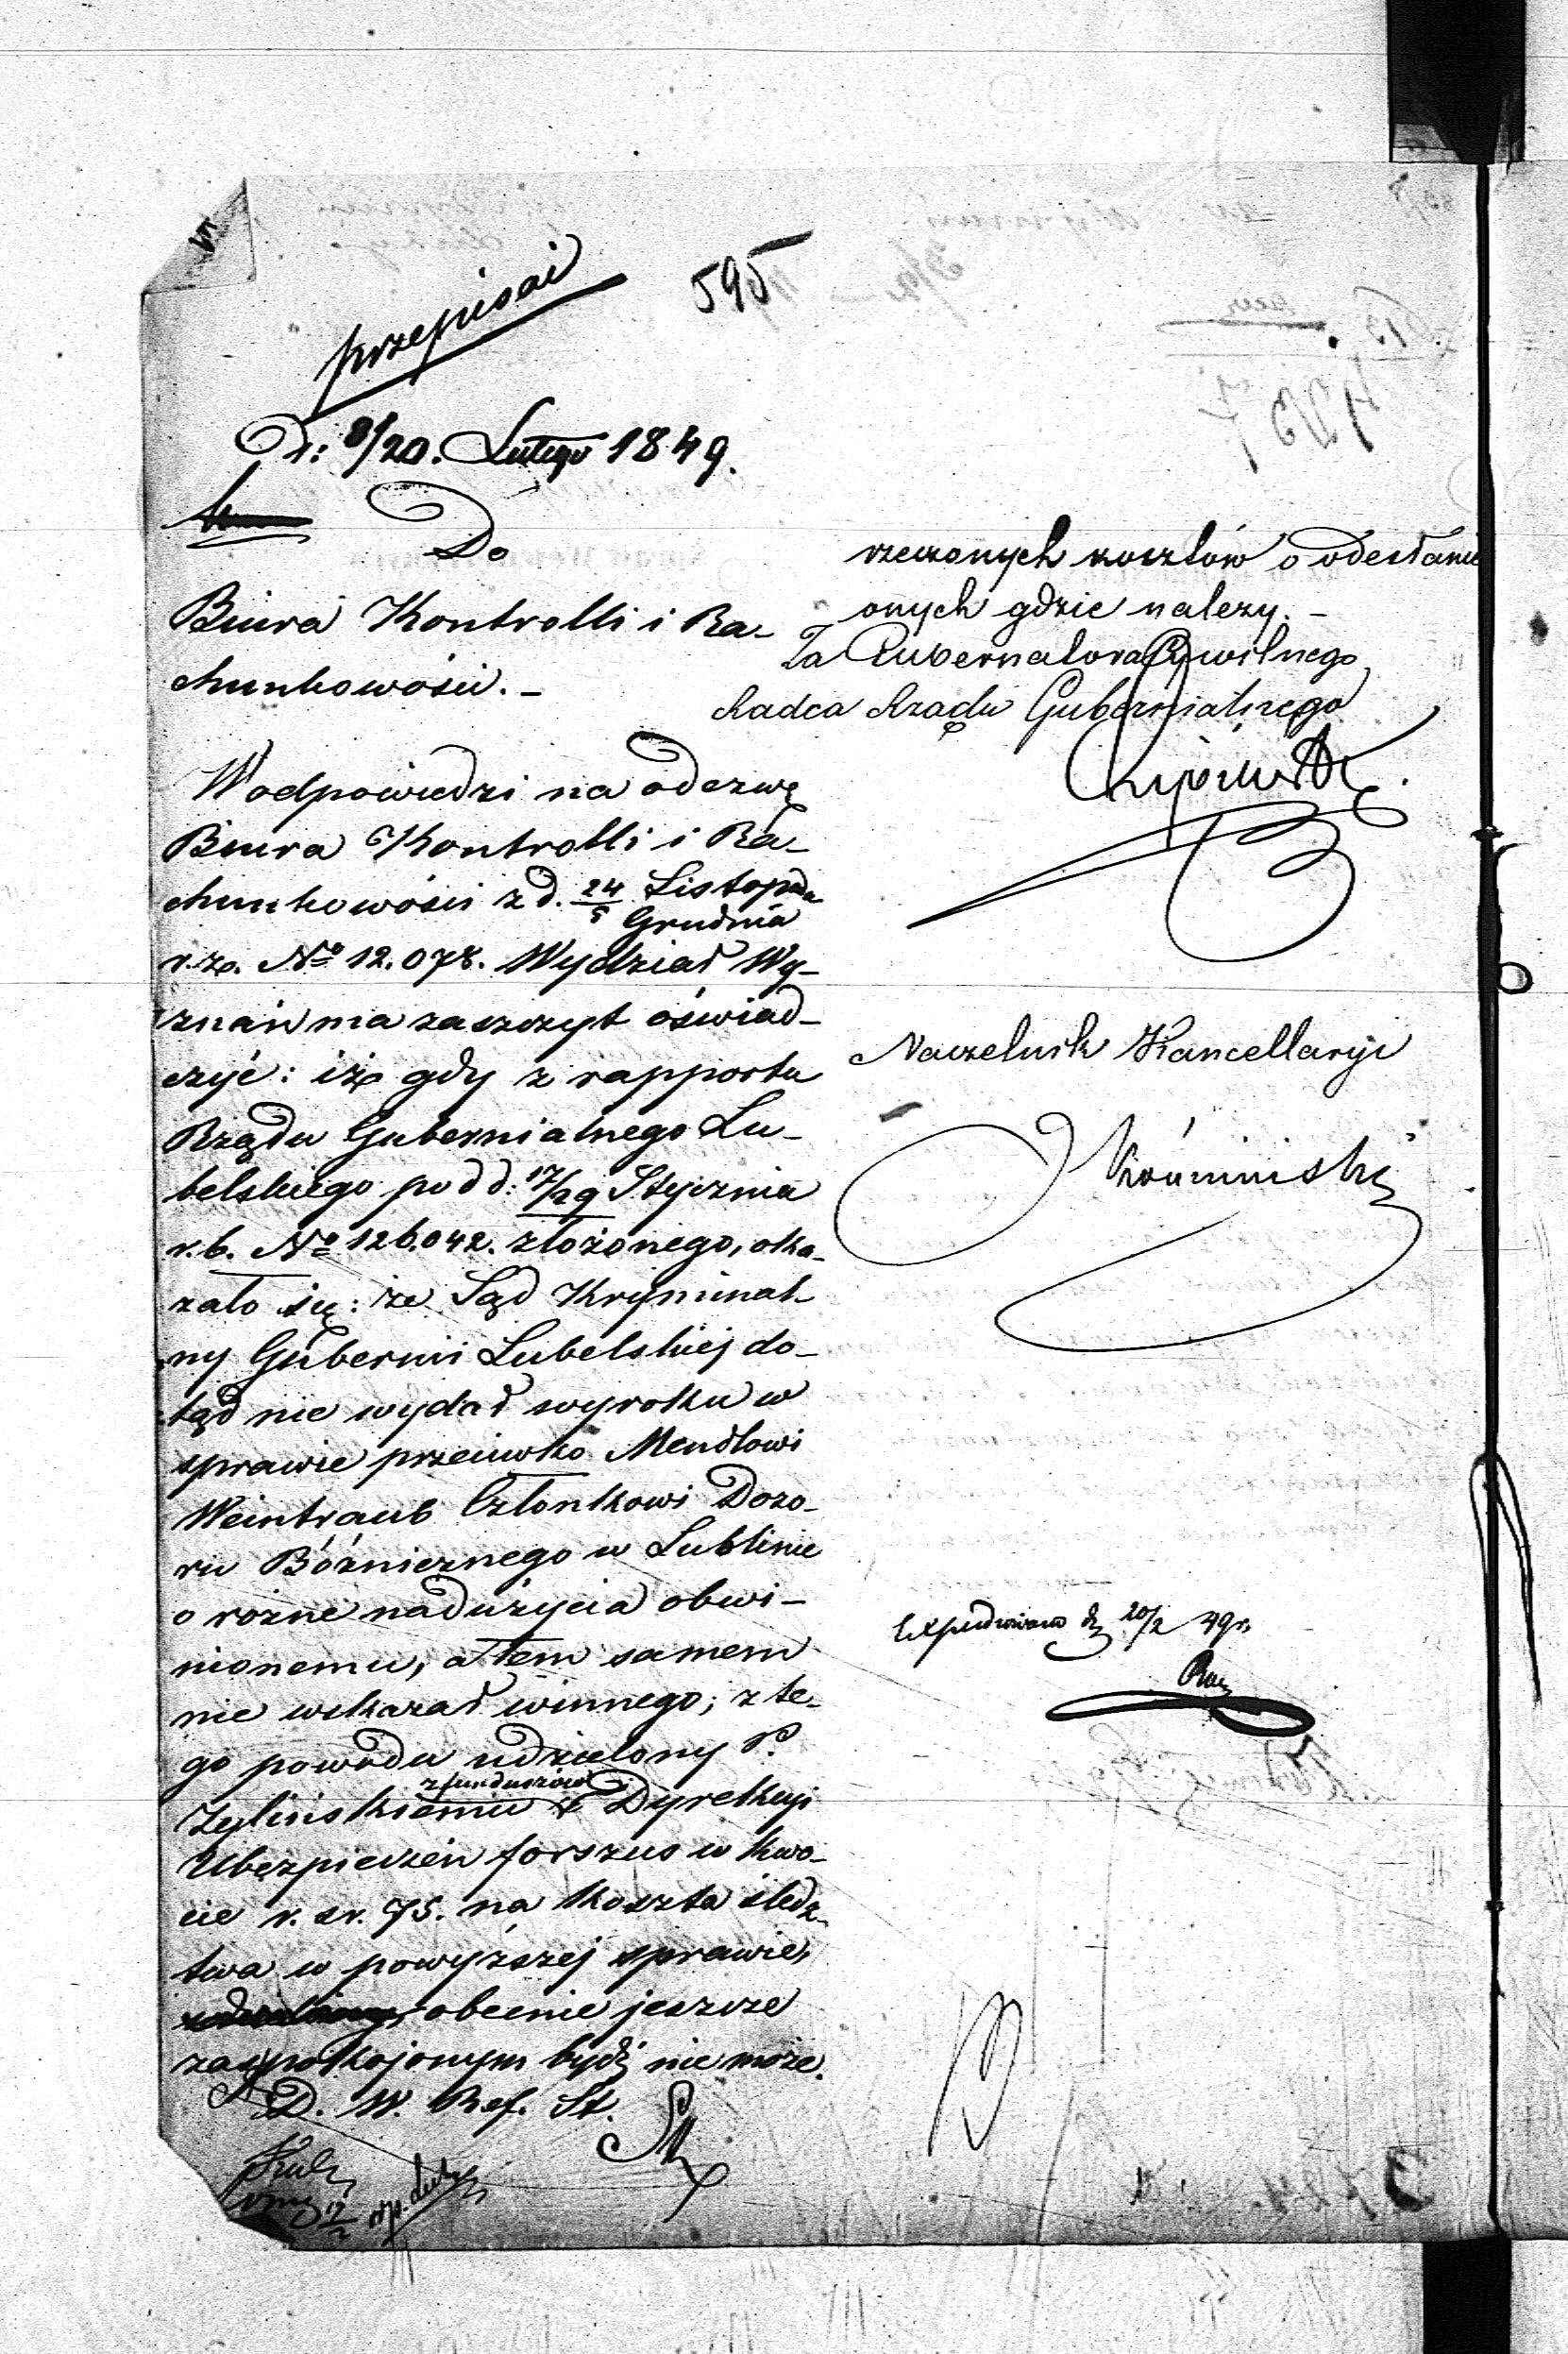 595
przepisać
D: 8/20. Lutego 1849.
Do
Biura Kontrolli i Ra-
chunkowości. -
W odpowiedzi na odezwę
Biura Kontrolli i Ra-
chunkowości z d. 24/5 Listopada Grudnia
r.z. No 12.078. Wydział Wy-
znań ma zaszczyt oświad-
czyć: iż gdy z rapportu
Rządu Gubernialnego Lu-
belskiego pod d: 17/29 Stycznia
r.b. No 126.042. złożonego, oka-
zało się: że Sąd Kryminal-
ny Gubernii Lubelskiej do-
tąd nie wydał wyroku w
sprawie przeciwko Mendlowi
Weintraub Członkowi Dozo-
ru Bóżnicznego w Lublinie
o rożne nadużycia obwi-
nionemu, a tem samem
nie wskazał winnego; z te-
go powodu udzielony P.
Zylińskiemu z funduszów Dyrekcyi
Ubezpieczeń forszus w kwo-
cie r. sr. 75. na koszta śledz-
twa w powyższej sprawie,
obecnie jeszcze
zaspokojonym bydź nie może.
D. W. Ref. St.
rzeczonych kosztów o odesłanie
onych gdzie należy. -
Za Gubernatora Cywilnego
Radca Rządu Gubernialnego
Naczelnik Kancellaryi
Expedwiowano d. 20/2 49 r.